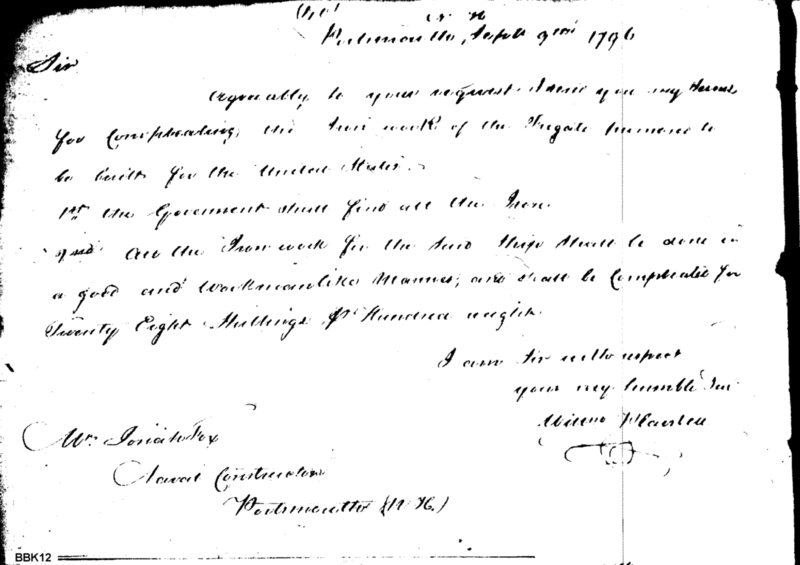 Portsmouth, Sept 9th 1796
Sir
agreeably to your request I send you my terms
for Compleating the Iron work of the Frigate to
be built for the United States.
1st the Goverment shall find all the Iron.
2nd All the Iron work for the said Ship shall be done in
a good and Workmanlike Manner, and shall be Compleated for
Twenty Eight Shillings pr Hundred weight.
I am Sir with respect
your humble
Mr Josiah Fox
Naval Constructor
Portsmouth (N H.)
BBK12